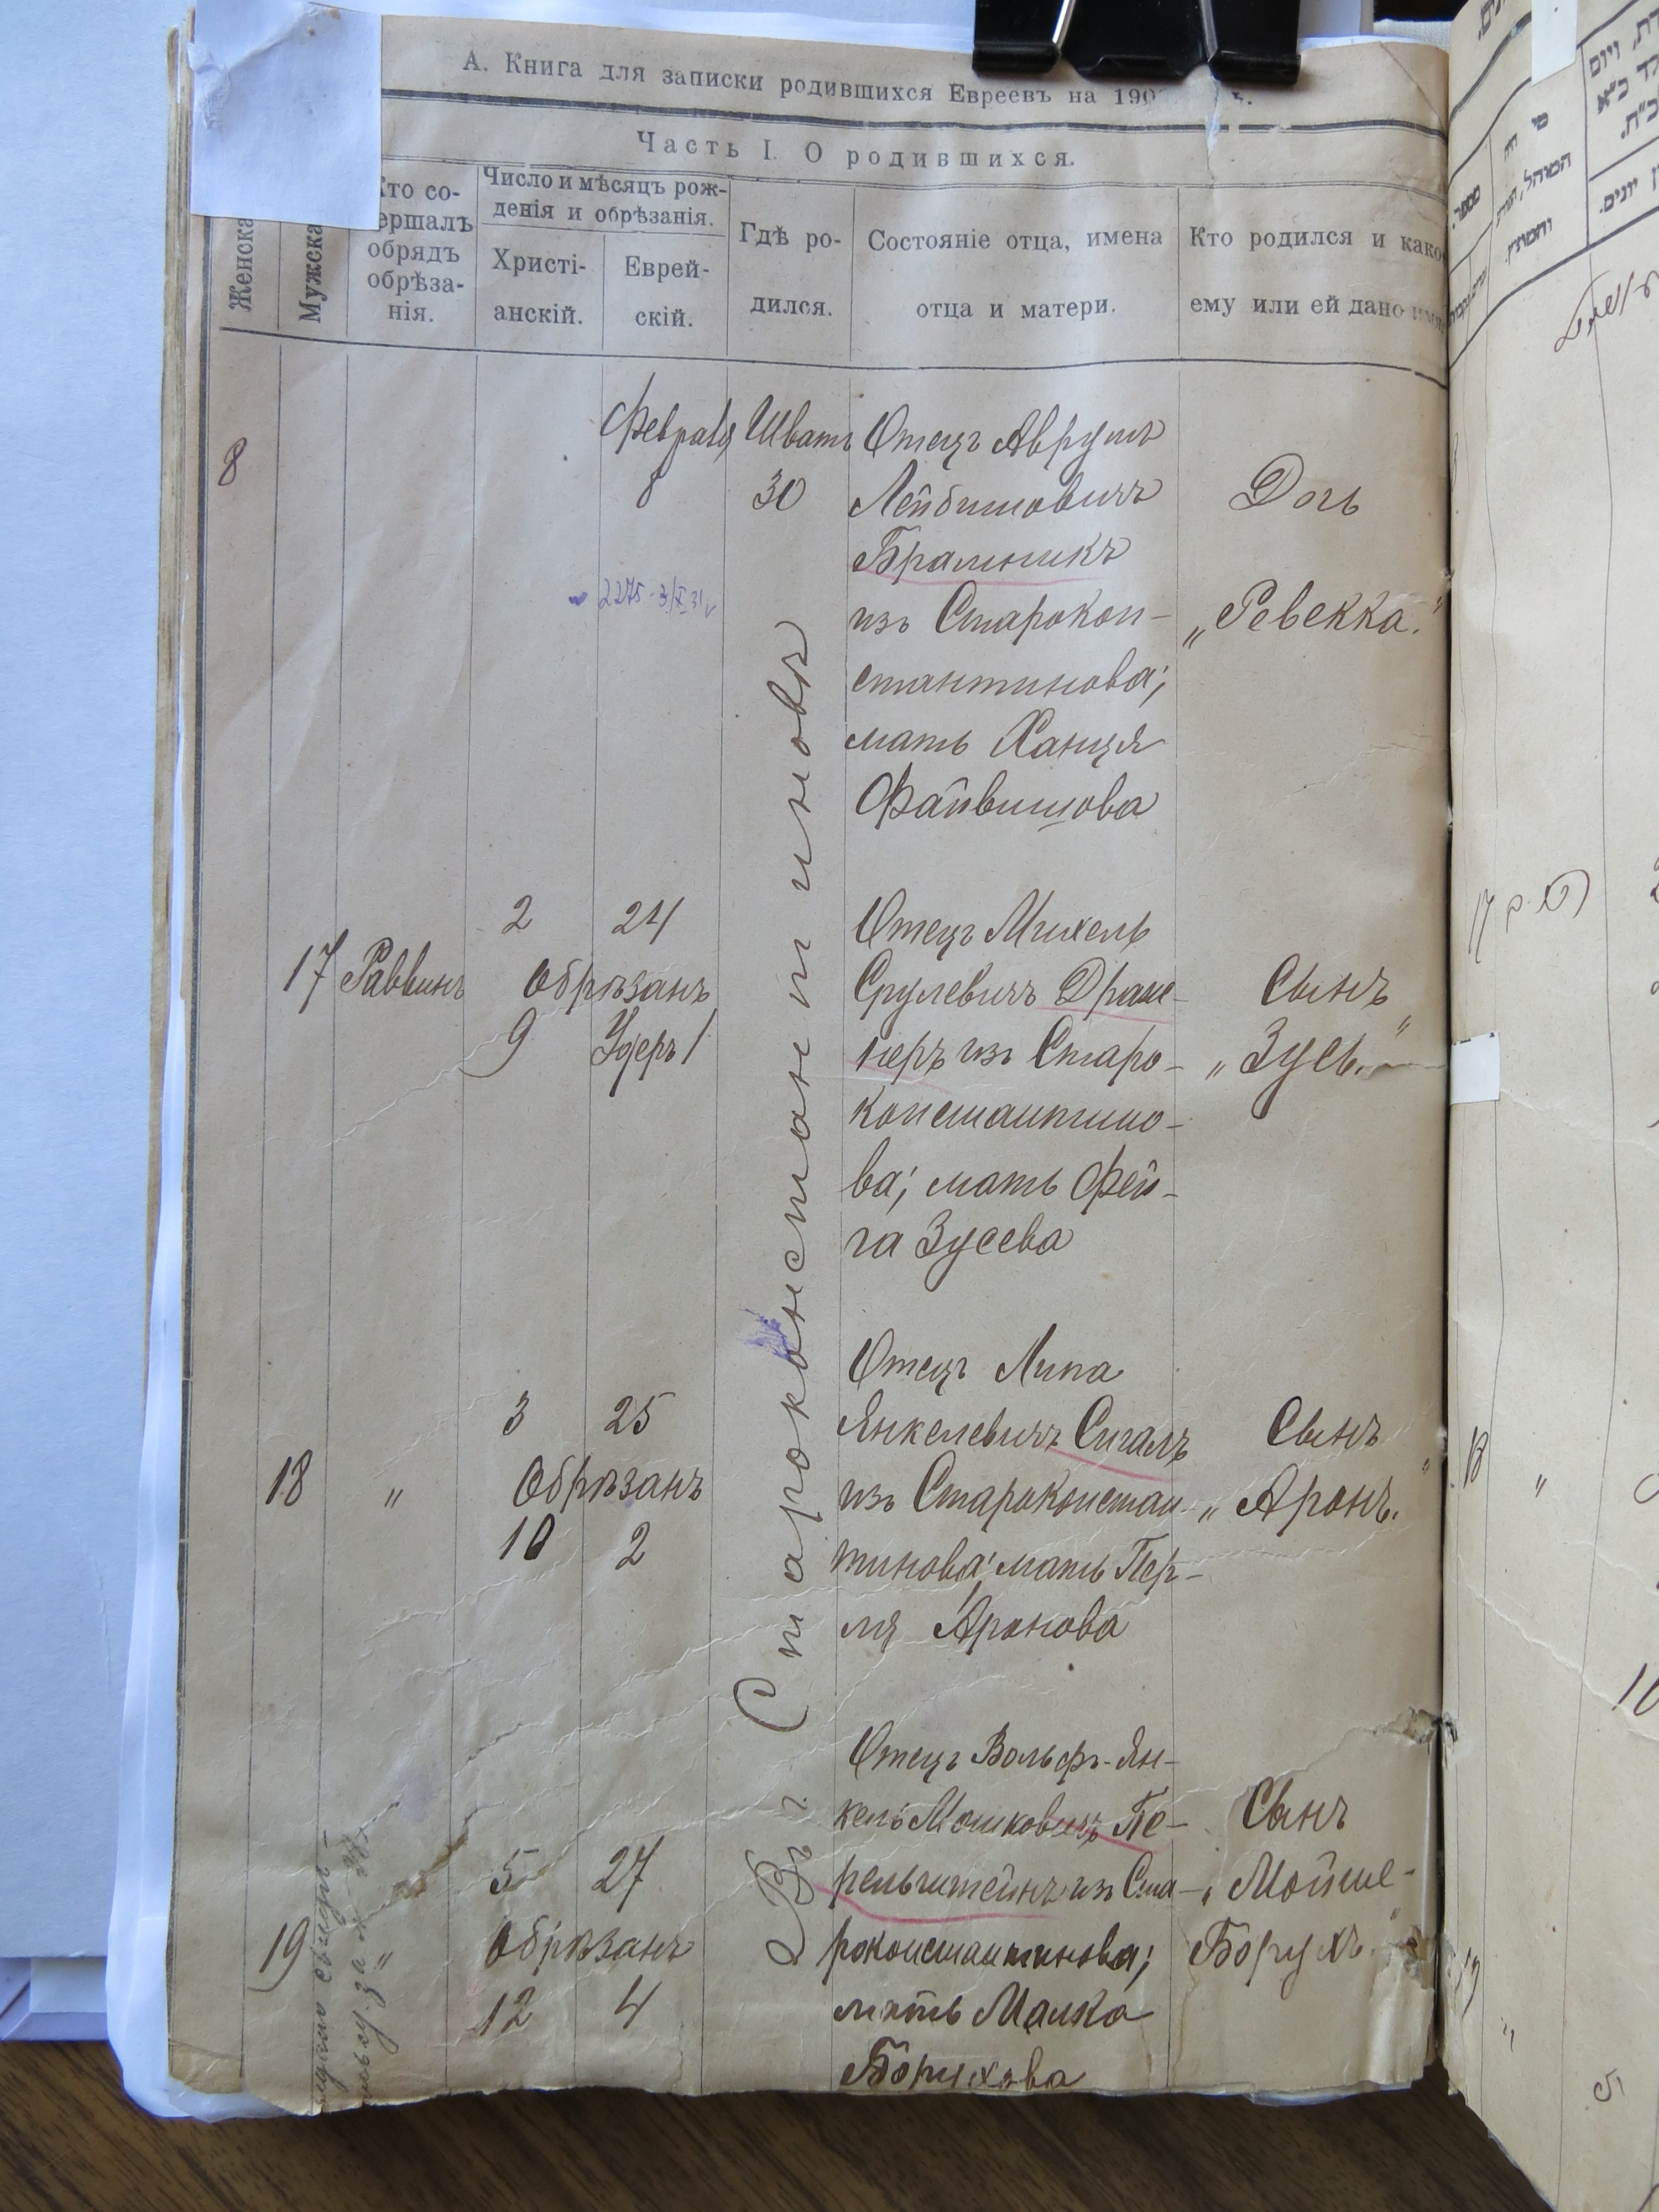 А. Книга для записки родившихся Евреевъ на 190
Часть I. О родившихся.
Женска
Мужска
Кто со-
ершалъ
обрядъ
обрѣза-
нія.
Число и мѣсяцъ рож-
денія и обрѣзанія.
Христі-
анскій.
Еврей-
скій.
Гдѣ ро-
дился.
Состояніе отца, имена
отца и матери.
Кто родился и како
ему или ей дано имя
8
Февраля Шватъ
8 30
Отецъ Аврумъ
Лейбишовичъ
Бралникъ
изъ Старокон-
стантинова;
мать Ханця
Файвишова
Дочь
„Ревекка."
2275
17 Раввинъ
2 24
Обрѣзанъ
9 Удеръ 1
Отецъ Михель
Срулевичъ
изъ Старо-
константино-
ва; мать Фей-
га Зусева
Сынъ
„Зусь."
18 "
3 25
Обрѣзанъ
10 2
Отецъ Липа
Янкелевичъ Сигалъ
изъ Староконстан-
тинова; мать Пер-
ля Аронова
Сынъ
„Аронъ."
19 "
5 27
Обрѣзанъ
12 4
Отецъ Вольфъ-Ян-
кель Мошковичъ Пе-
рельштейнъ изъ Ста-
роконстантинова;
мать Малка
Борухова
Сынъ
„Мойше-
Борухъ."
Въ г. Староконстантиновѣ
17
18
"
19
"